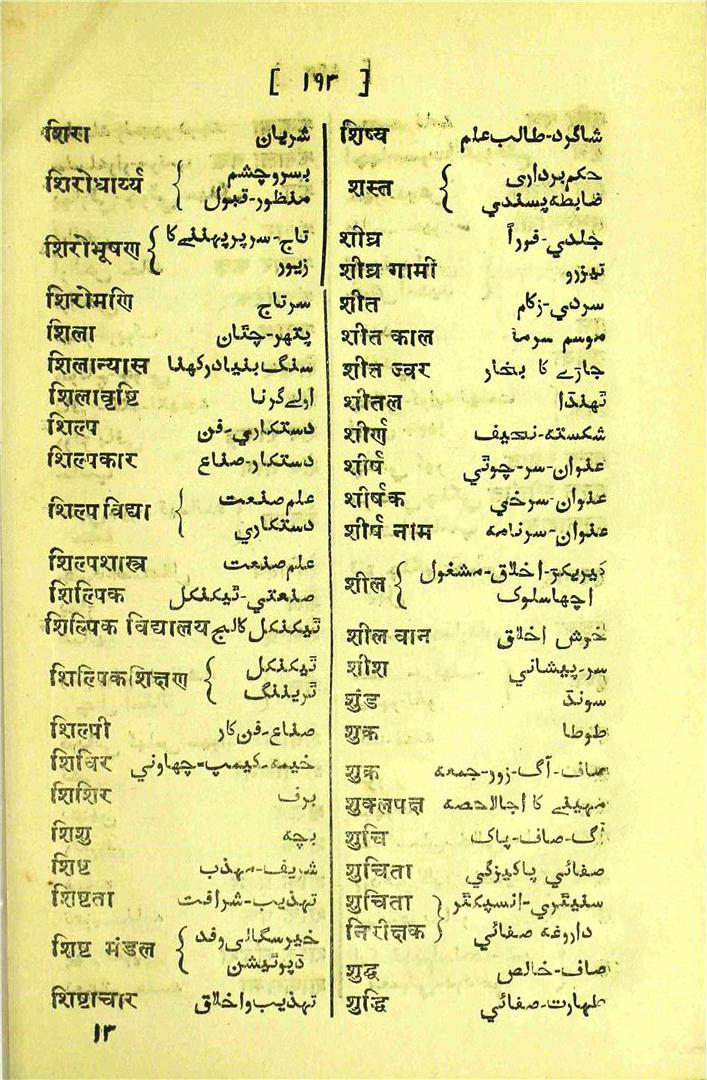 [ ۱۹۳ ]
शिरा شریان
शिरोधार्य्य { بسروچشم
منظور-قبول
शिरोभूषण { تاج-سرپرپہننےکا
زیور
शिरोमणि سرتاج
शिला پتھر-چٹان
शिलान्यास سنگ بنیادرکھنا
शिलावृष्टि اولےگرنا
शिल्प دستکاری-فن
शिल्पकार دستکار-صناع
शिल्पविद्या { علم صنعت
دستکاری
शिल्पशास्त्र علم صنعت
शिल्पिक صنعتی-ٹیکنکل
शिल्पिक विद्यालय ٹیکنکل کالج
शिल्पिकशिक्षण { ٹیکنکل
ٹریننگ
शिल्पी صناع-فن کار
शिविर خیمہ-کیمپ-چھاونی
शिशिर برف
शिशु بچہ
शिष्ट شریف-مہذب
शिष्टता تہذیب-شرافت
शिष्ट मंडल { خیرسگالی وفد
ڈپوٹیشن
शिष्टाचार تہذیب واخلاق
शिष्य شاگرد-طالب علم
शस्त { حکم برداری
ضابطہ پسندی
शीघ्र جلدی-فوراً
शीघ्र गामी تیزرو
शीत سردی-زکام
शीत काल موسم سرما
शीत ज्वर جاڑے کا بخار
शीतल ٹھنڈا
शीर्ण شکستہ-نحیف
शीर्ष عنوان-سر-چوٹی
शीर्षक عنوان-سرخی
शीर्ष नाम عنوان-سرنامہ
शील { کیریکٹر-اخلاق-مشغول
اچھاسلوک
शील वान خوش اخلاق
शीश سر-پیشانی
शुंड سونڈ
शुक طوطا
शुक्र صاف-آگ-زور-جمعہ
शुक्लपक्ष مہینے کا اجالاحصہ
शुचि آگ-صاف-پاک
शुचिता صفائی پاکیزگی
शुचिता } سنیٹری-انسپکٹر
निरीक्षक } داروغہ صفائی
शुद्ध صاف-خالص
शुद्धि طہارت-صفائی
۱۳